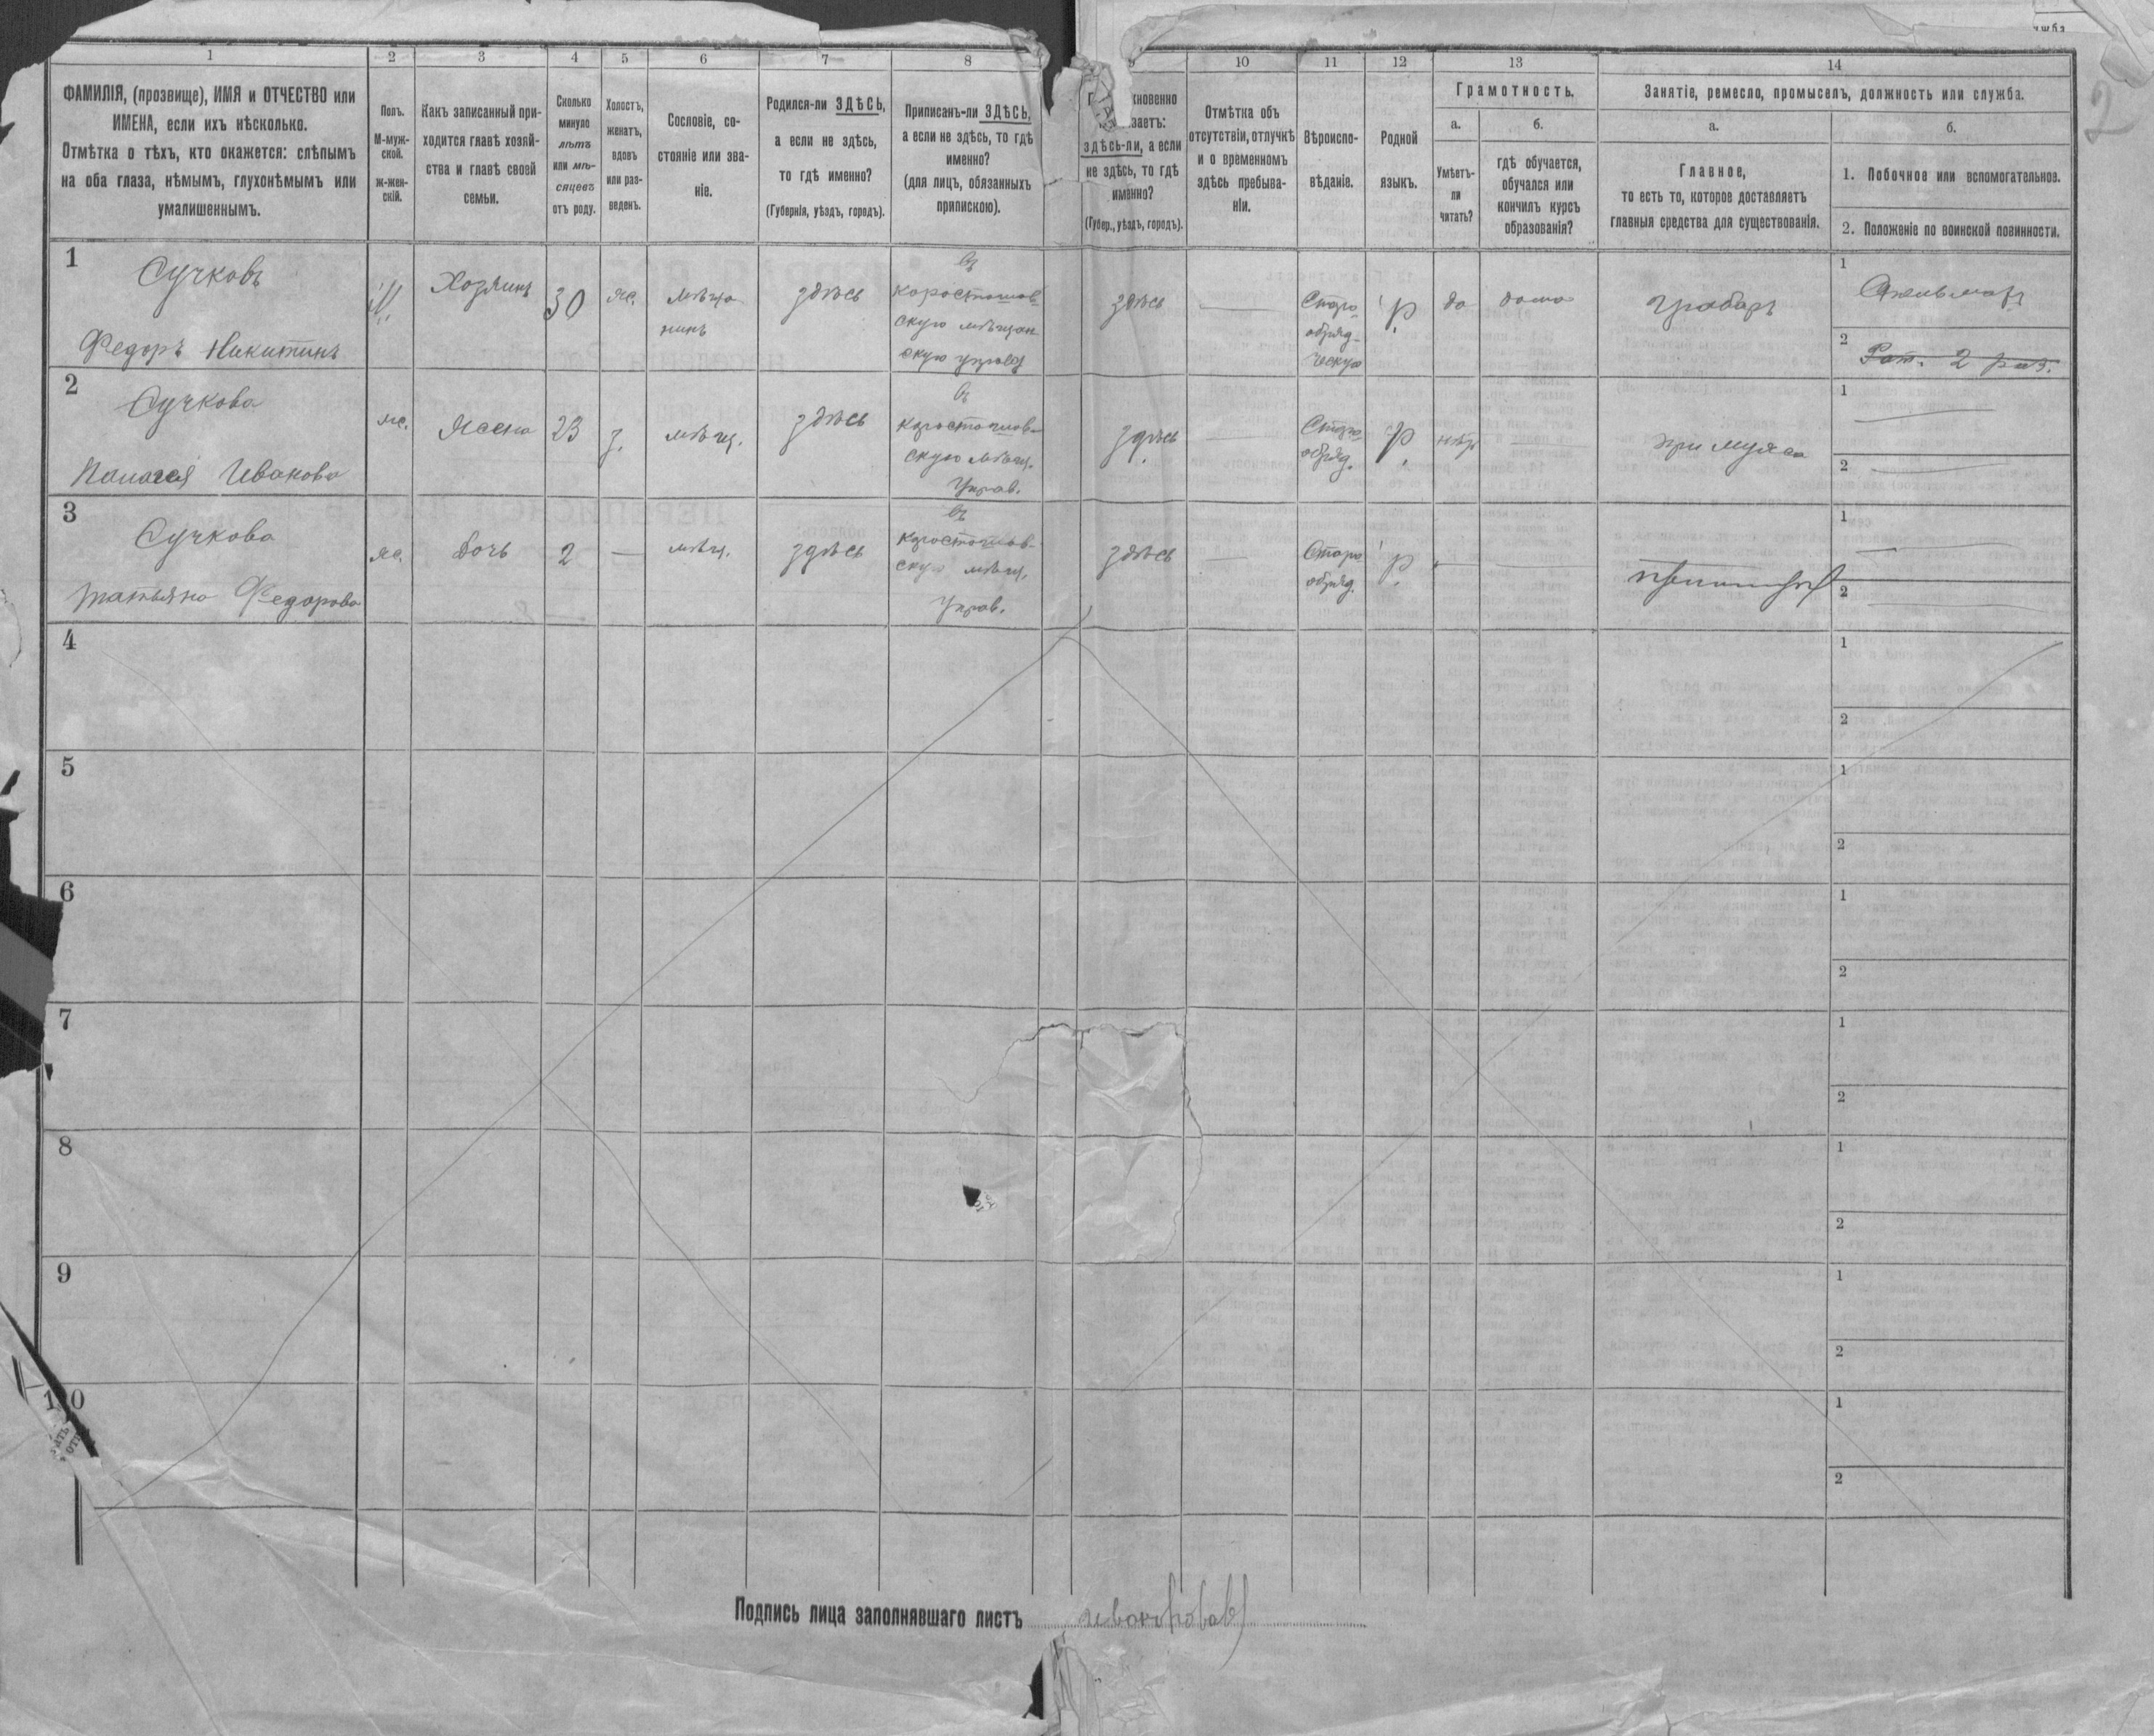 1 2 3 4 5 6 7 8 9 10 11 12 13 14
ФАМИЛІЯ, (прозвище), ИМЯ и ОТЧЕСТВО или
ИМЕНА, если ихъ нѣсколько.
Отмѣтка о тѣхъ, кто окажется: слѣпымъ
на оба глаза, нѣмымъ, глухонѣмымъ или
умалишеннымъ.
Полъ.
М-муж-
ской.
ж-жен-
скій.
Какъ записанный при-
ходится главѣ хозяй-
ства и главѣ своей
семьи.
Сколько
минуло
лѣтъ
или мѣ-
сяцевъ
отъ роду.
Холостъ,
женатъ,
вдовъ
или раз-
веденъ.
Сословіе, со-
стояніе или зва-
ніе.
Родился-ли ЗДѢСЬ,
а если не здѣсь,
то гдѣ именно?
(Губернія, уѣздъ, городъ).
Приписанъ-ли ЗДѢСЬ,
а если не здѣсь, то гдѣ
именно?
(для лицъ, обязанныхъ
припискою).
кновенно
ваетъ:
здѣсь-ли, а если
не здѣсь, то гдѣ
именно?
(Губер., уѣздъ, городъ).
Отмѣтка объ
отсутствіи, отлучкѣ
и о временномъ
здѣсь пребыва-
ніи.
Вѣроиспо-
вѣданіе.
Родной
языкъ.
Грамотность.
а.
Умѣетъ-
ли
читать?
б.
гдѣ обучается,
обучался или
кончилъ курсъ
образованія?
Занятіе, ремесло, промыселъ, должность или служба.
а.
Главное,
то есть то, которое доставляетъ
главныя средства для существованія.
б.
1. Побочное или вспомогательное.
2. Положеніе по воинской повинности.
1
Сучковъ
Федоръ Никитинъ
М.
Хозяинъ
30
же.
мѣща
нинъ
здѣсь
въ
коростышов-
скую мѣщан
скую управу
здѣсь
Старо
обряд-
ческую
р
да
дома
грабарь
1
2 Рат. 2 раз.
2
Сучкова
Пелагея Иванова
же.
Жена
23
з.
мѣщ.
здѣсь
въ
коростышов-
скую мѣщ.
Управ.
здѣсь
Старо
обряд.
р.
нѣт
при мужѣ
1
2
3
Сучкова
Татьяна Федорова
же.
дочь
2
мѣщ.
здѣсь
въ
коростышов-
скую мѣщ.
Управ.
здѣсь
Старо
обряд.
р.
1
2
4
1
2
5
1
2
6
1
2
7
1
2
8
1
2
9
1
2
10
1
2
Подпись лица заполнявшаго листъ
2